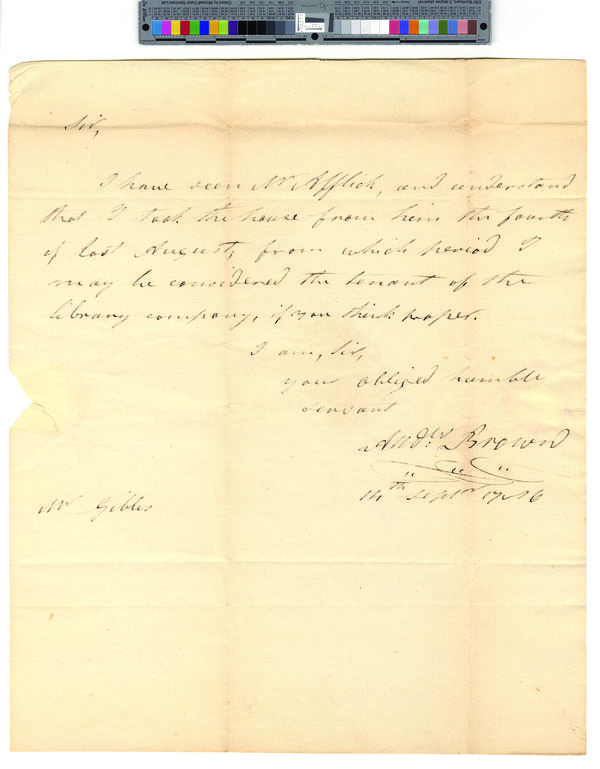 Sir,
I have seen Mr Afflick, and understand
that I took the house from him the fourth
of last August; from which period I
may be considered the tenant of the
library company, if you think proper.
I am, Sir,
your obliged humble
servant
Andw. Brown
14th Septr 1786
Mr Gibbs